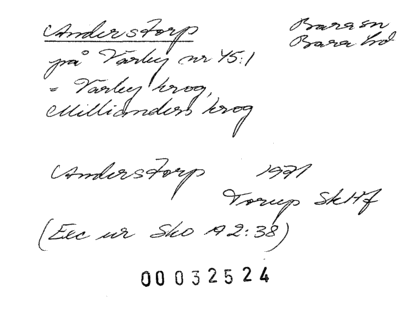 Anderstorp
Bara sn
Bara hd
på Värby nr 45:1
= Värby krog,
Millianders krog
Anderstorp 1971
Torup SkHf
(Exc ur Sko A2:38)
00032524